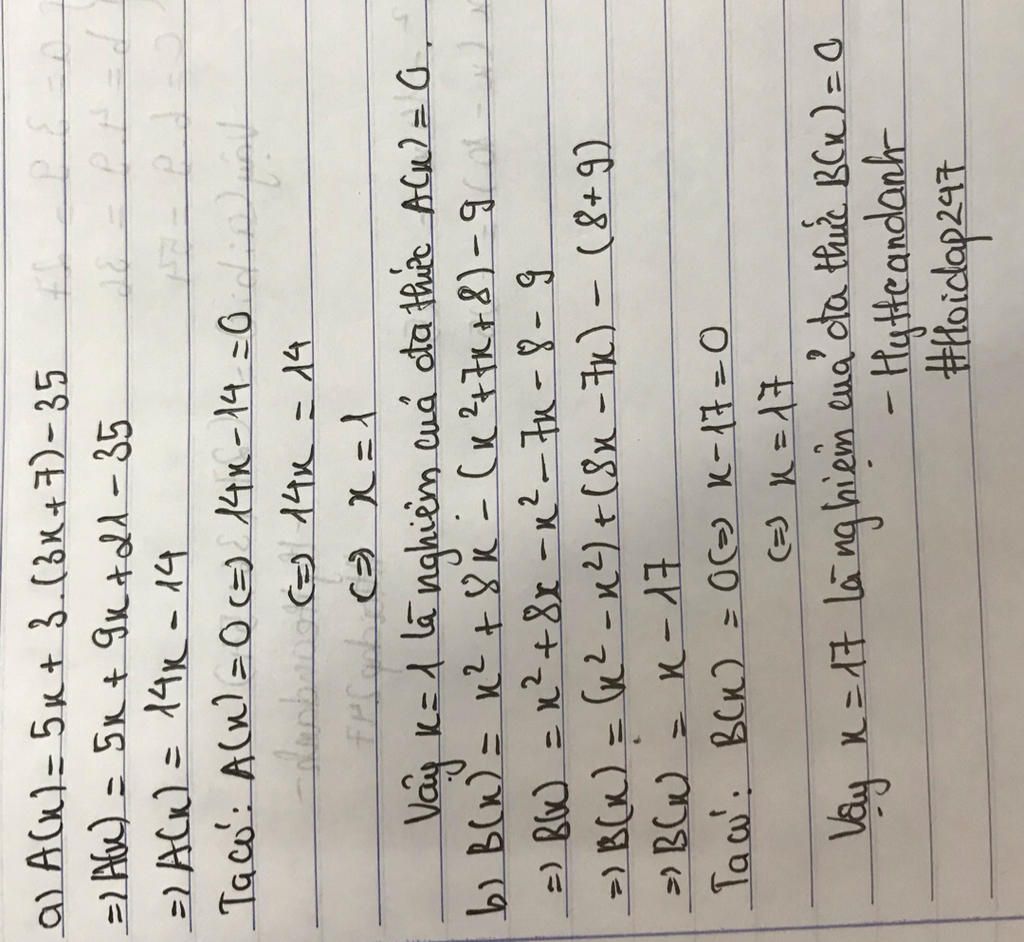 a) A(x) = 5x + 3.(3x+7) - 35
=) A(x) = 5x + 9x + 21 - 35
=) A(x) = 14x - 14
Ta có: A(x) = 0 (=) 14x - 14 = 0
(=) 14x = 14
(=) x = 1
Vậy x = 1 là nghiệm của đa thức A(x) = 0.
b) B(x) = x² + 8x - (x² + 7x + 8) - 9
=) B(x) = x² + 8x - x² - 7x - 8 - 9
=) B(x) = (x² - x²) + (8x - 7x) - (8 + 9)
=) B(x) = x - 17
Ta có: B(x) = 0 (=) x - 17 = 0
(=) x = 17
Vậy x = 17 là nghiệm của đa thức B(x) = 0
- Hytteandanh-
#Hoidap247